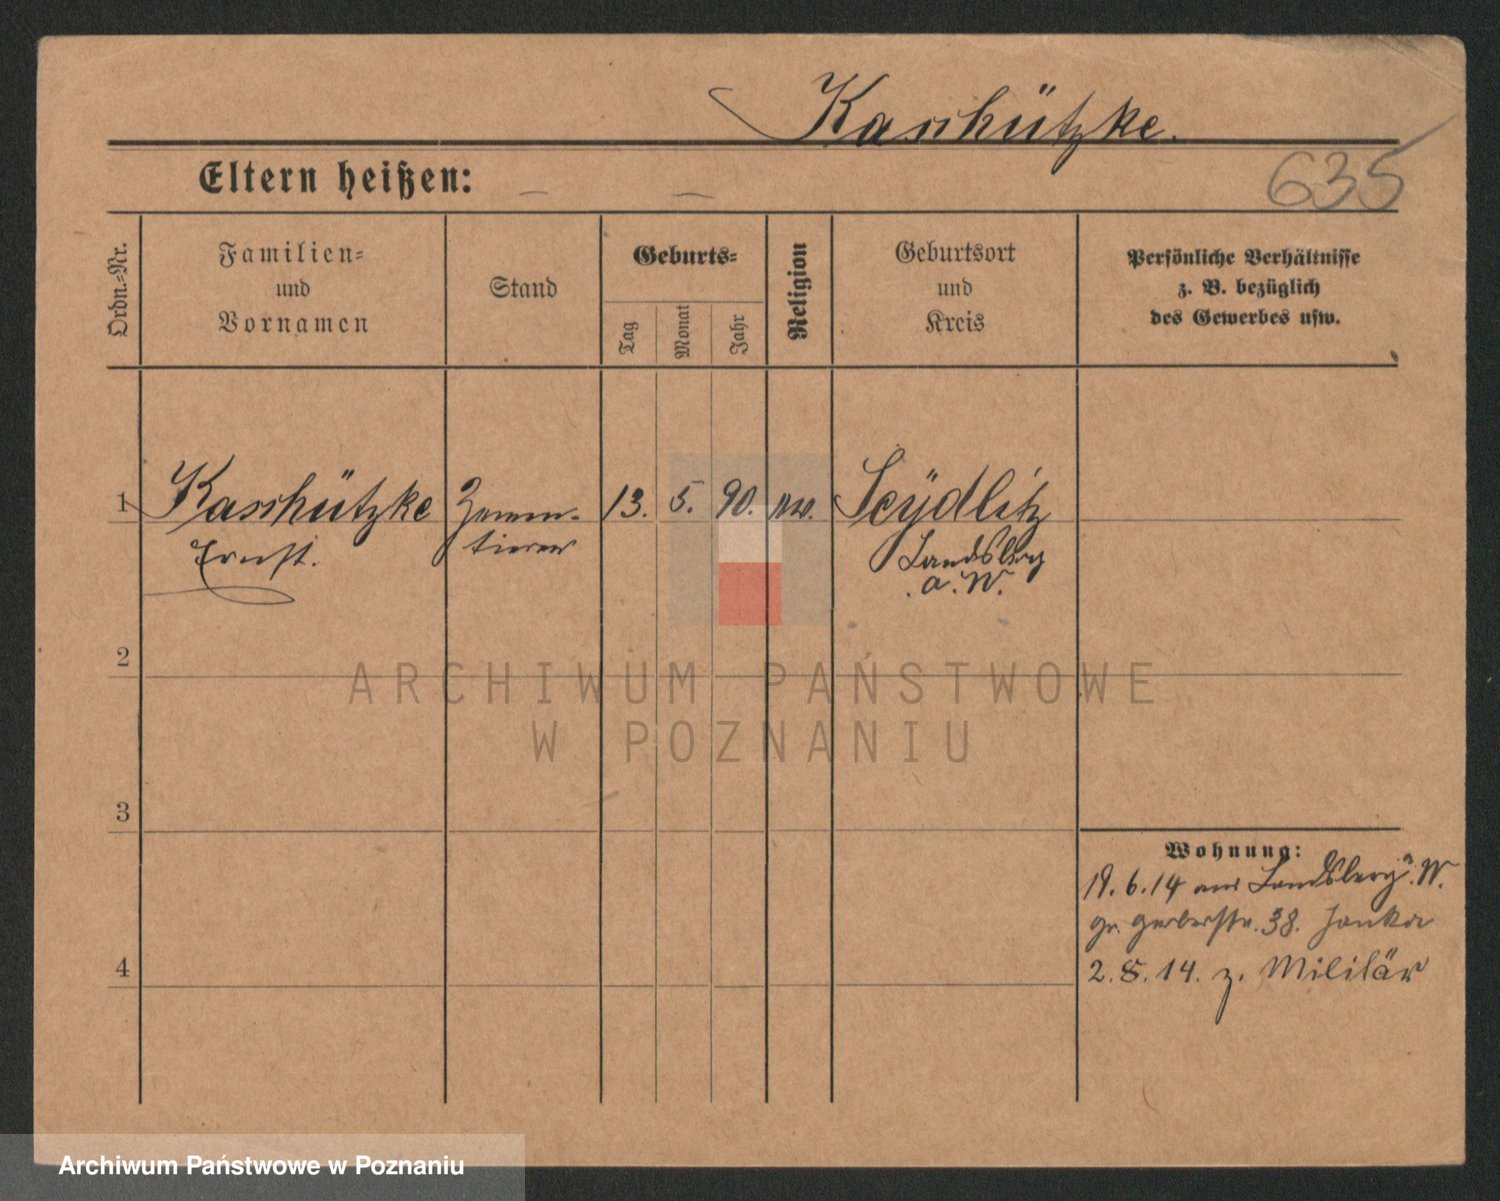 Kaschützke.
635
Eltern heißen: — —
Ordn.-Nr.
Familien-
und
Vornamen
Stand
Geburts-
Tag
Monat
Jahr
Religion
Geburtsort
und
Kreis
Persönliche Verhältnisse
z. B. bezüglich
des Gewerbes usw.
1 Kaschützke 13. 5. 90. Seÿdlitz
Ernst. Landsberg
a. W.
2
3
4
Wohnung:
19. 6. 14 aus Landsberg a. W.
gr. Gerberstr. 38. Janka
2. 8. 14. z. Militär
ARCHIWUM PAŃSTWOWE
W POZNANIU
Archiwum Państwowe w Poznaniu